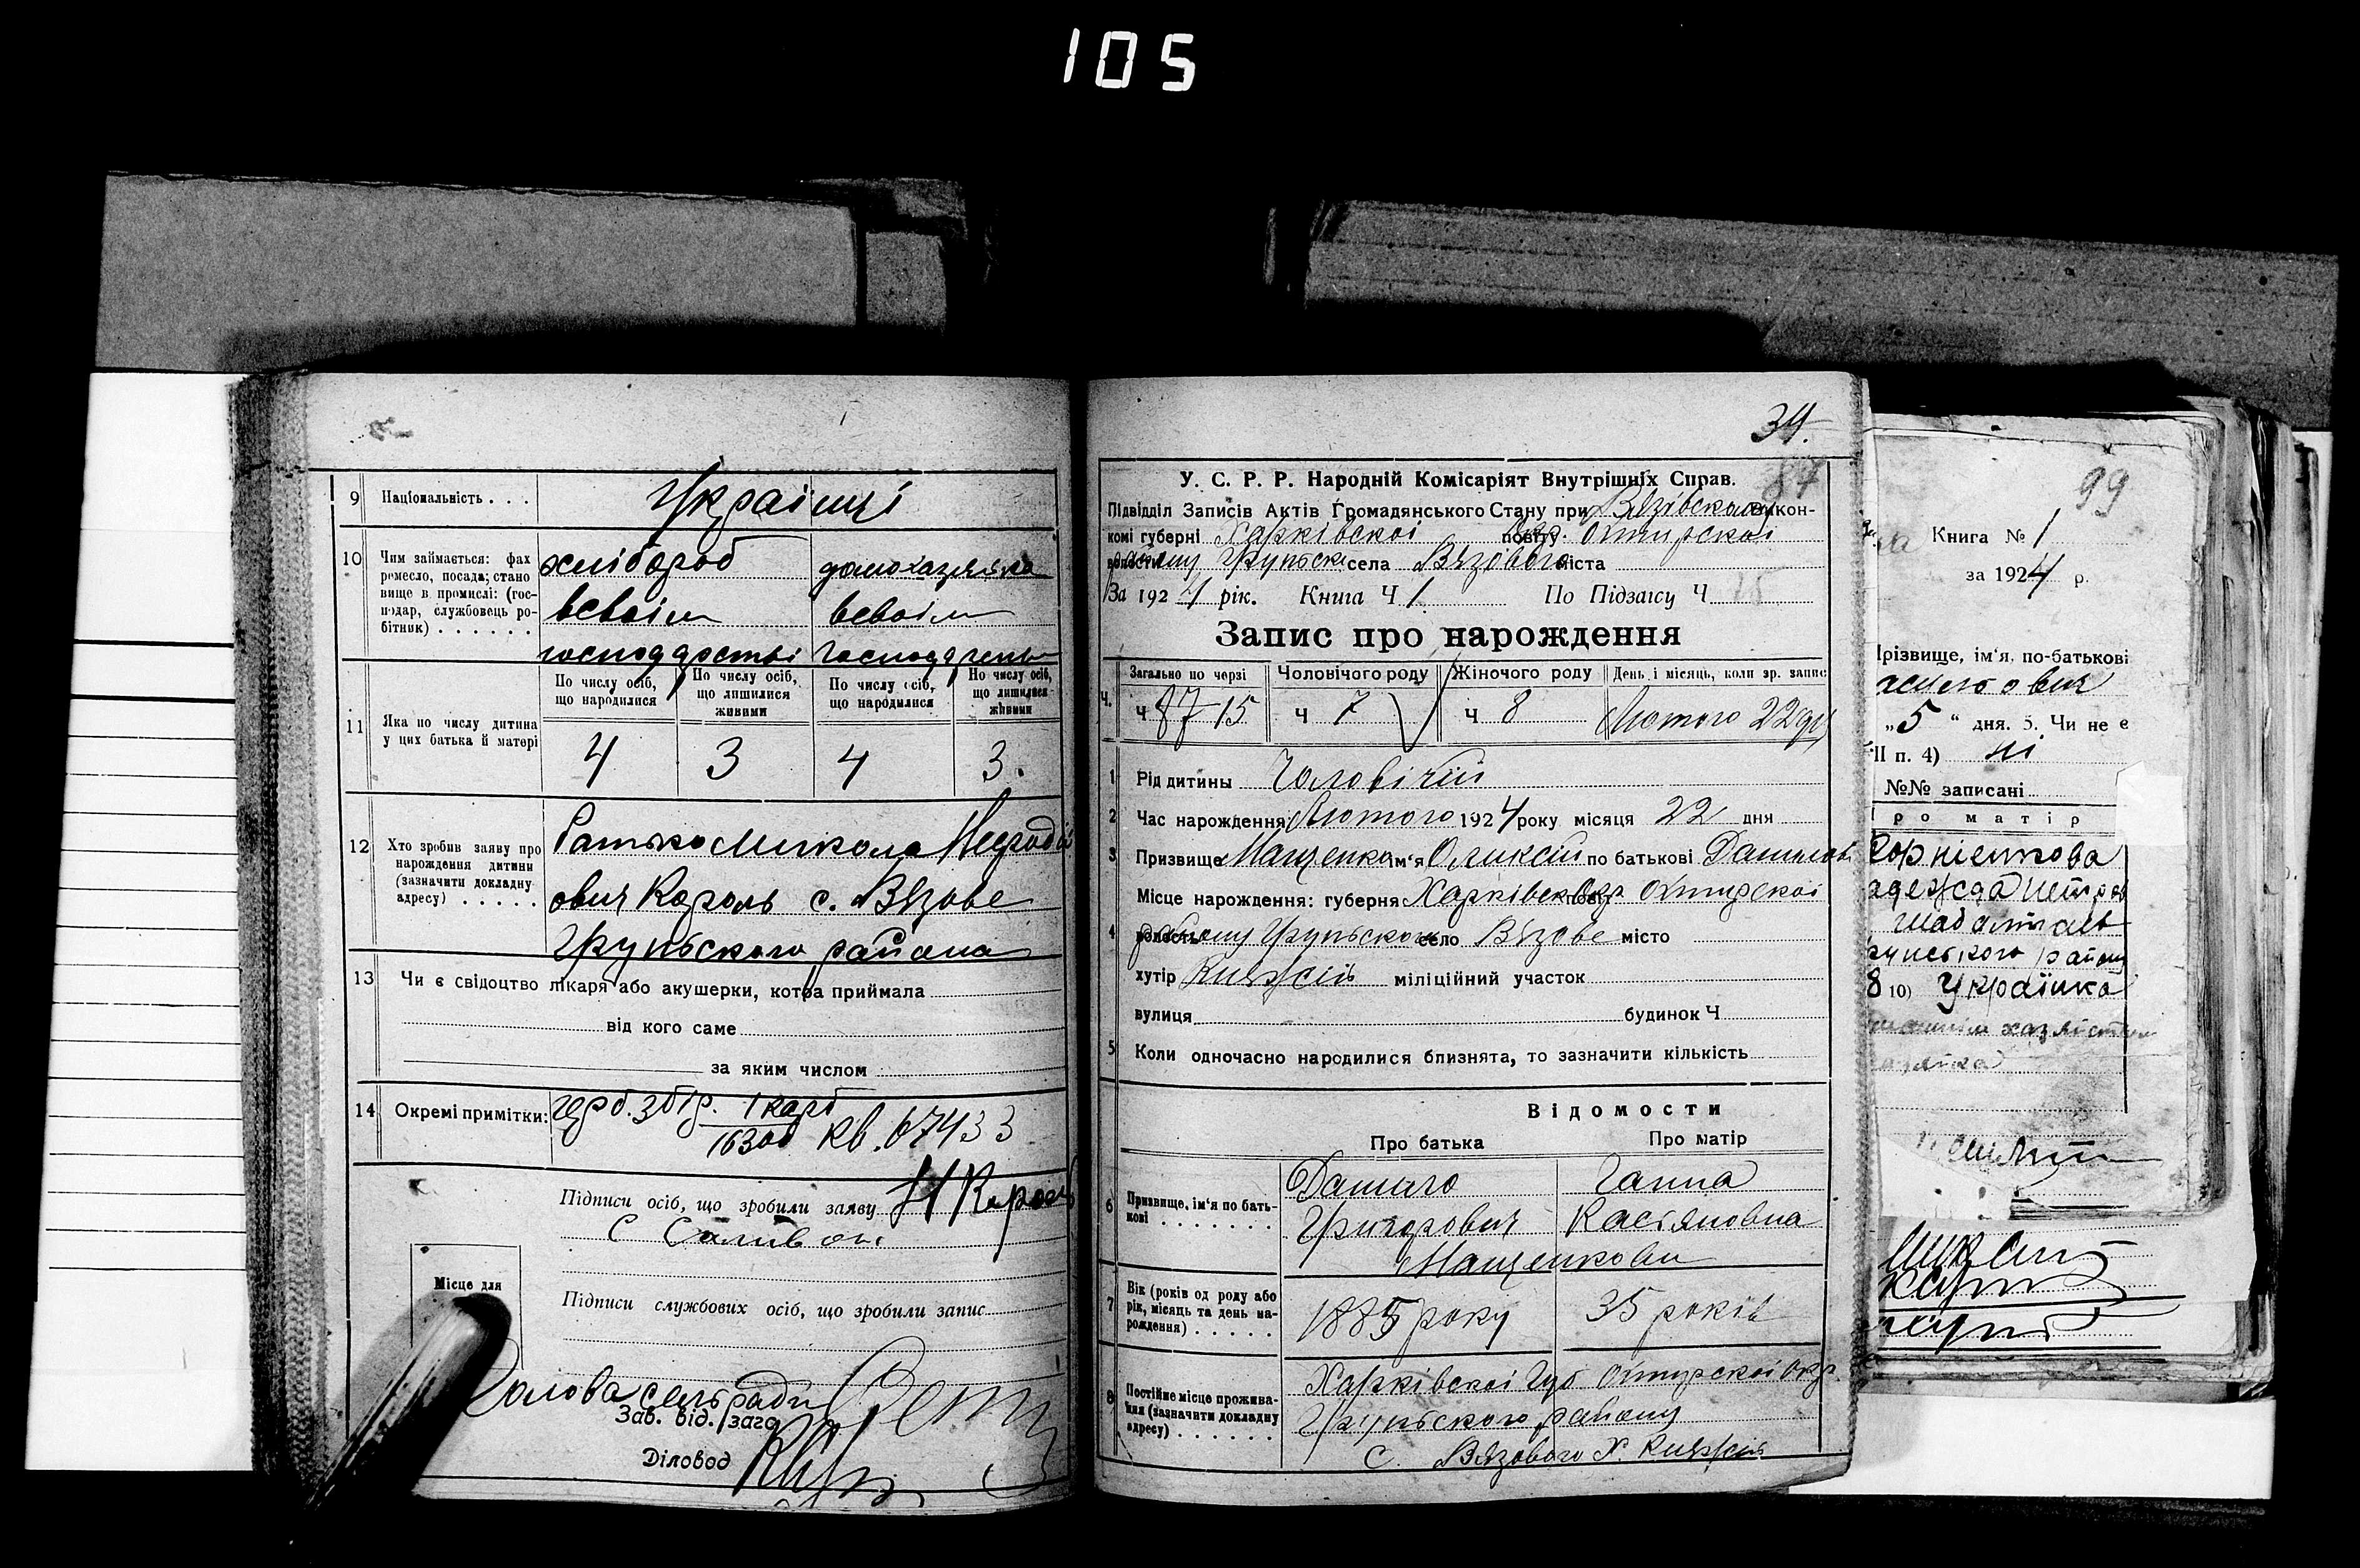 105
9 Національність . . . Українці
10 Чим займається: фах ремесло, посада; становище в промислі: (господар, службовець робітник) . . . . . .
хлібороб
всвоім
господарстві
домохазяйка
всвоім
11 Яка по числу дитина у цих батька й матері
По числу осіб, що народилися
По числу осіб, що лишилися живими
По числу осіб, що народилися
По числу осіб, що лишилися живими
4 3 4 3.
12 Хто зробив заяву про нарождення дитини (зазначити докладну адресу) . . . . .
Микола
ович Король с. Вязове
Груньского района
13 Чи є свідоцтво лікаря або акушерки, котра приймала
від кого саме
за яким числом
14 Окремі примітки: герб. збір. 1 карб кв. 67433
Підписи осіб, що зробили заяву Н Король
Місце для
Підписи службових осіб, що зробили запис
Голова сельради
Зав. від. заго
Діловод
34.
87
У. С. Р. Р. Народній Комісаріят Внутрішніх Справ.
Підвідділ Записів Актів Громадянського Стану при Вязівском Викон-
комі губерні Харківскоі повіту Окр. Охтирскоі
волости району Груньск села Вязового міста
За 1924 рік. Книга Ч 1 По Підзапису Ч 15
Запис про нарождення
Загально по черзі Чоловічого роду Жіночого роду День і місяць, коли зр. запис
Ч.
ч 87 15 ч 7 ч 8 Лютого 22 дня
1 Рід дитины Чоловічий
2 Час нарождення Лютого 1924 року місяця 22 дня
3 Призвище Мащенко ім'я Оликсій по батькові Данилов
Місце нарождення: губерня Харківск повіт Окр Охтирскоі
4 волость району Груньского село Вязове місто
хутір Княжсій міліційний участок
вулиця будинок Ч
5 Коли одночасно народилися близнята, то зазначити кількість
Відомости
Про батька Про матір
6 Призвище, ім'я по батькові . . . . . . .
Данило Ганна
Григорович Касіяновна
Мащенкови
7 Вік (років од роду або рік, місяць та день нарождення) . . . . .
1885 року 35 років
8 Постійне місце проживання (зазначити докладну адресу) . . . . . .
Харківскоі Губ Охтирскоі Окр.
Груньского району
С. Вязового Х. Княжсій
99
Книга № 1
за 1924 р.
Прізвище, ім'я, по-батькові
„5" дня. 5. Чи не є
II п. 4) ні
№№ записані
про матір
Корнієнкова
району
8 10) Українка